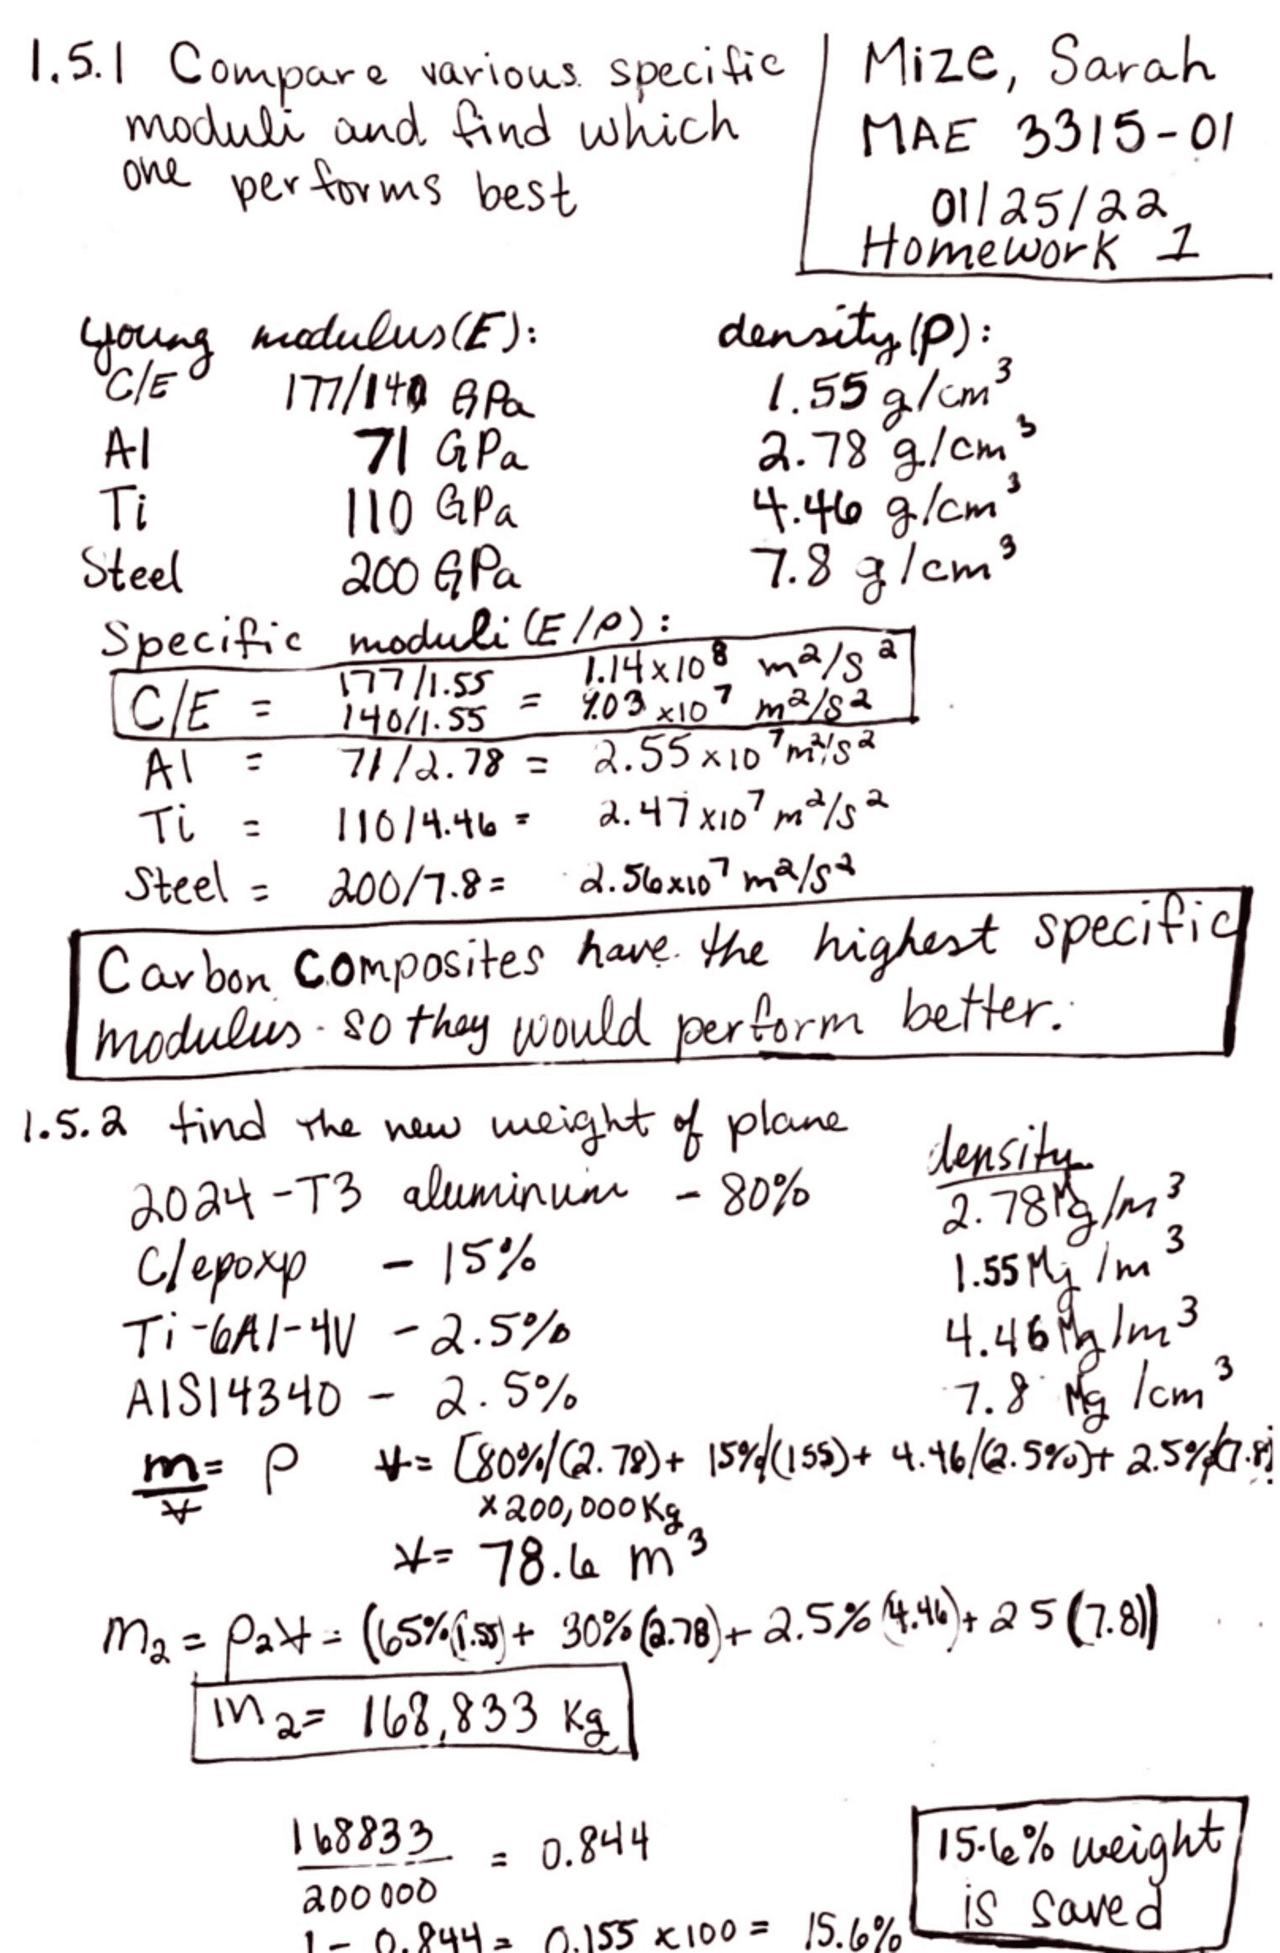 1.5.1 Compare various specific
moduli and find which
one performs best
Mize, Sarah
MAE 3315-01
01/25/22
Homework 1
young modulus(E): density(ρ):
C/E 177/140 GPa 1.55 g/cm³
Al 71 GPa 2.78 g/cm³
Ti 110 GPa 4.46 g/cm³
Steel 200 GPa 7.8 g/cm³
Specific moduli(E/ρ):
C/E = 177/1.55 = 1.14x10⁸ m²/s²
140/1.55 9.03x10⁷ m²/s²
Al = 71/2.78 = 2.55x10⁷ m²/s²
Ti = 110/4.46 = 2.47x10⁷ m²/s²
Steel = 200/7.8 = 2.56x10⁷ m²/s²
Carbon composites have the highest specific
modulus so they would perform better.
1.5.2 find the new weight of plane
density
2024-T3 aluminum - 80% 2.78 Mg/m³
C/epoxp - 15% 1.55 Mg/m³
Ti-6Al-4V - 2.5% 4.46 Mg/m³
AISI4340 - 2.5% 7.8 Mg/cm³
m/V = ρ V = [80%/(2.78) + 15%/(155) + 4.46/(2.5%) + 2.5%/(7.8)]
x 200,000 Kg
V = 78.6 m³
m₂ = ρ₂V = (65%(1.55) + 30%(2.78) + 2.5%(4.46) + 25(7.8))
m₂ = 168,833 Kg
168833/200000 = 0.844
1 - 0.844 = 0.155 x100 = 15.6%
15.6% weight
is saved